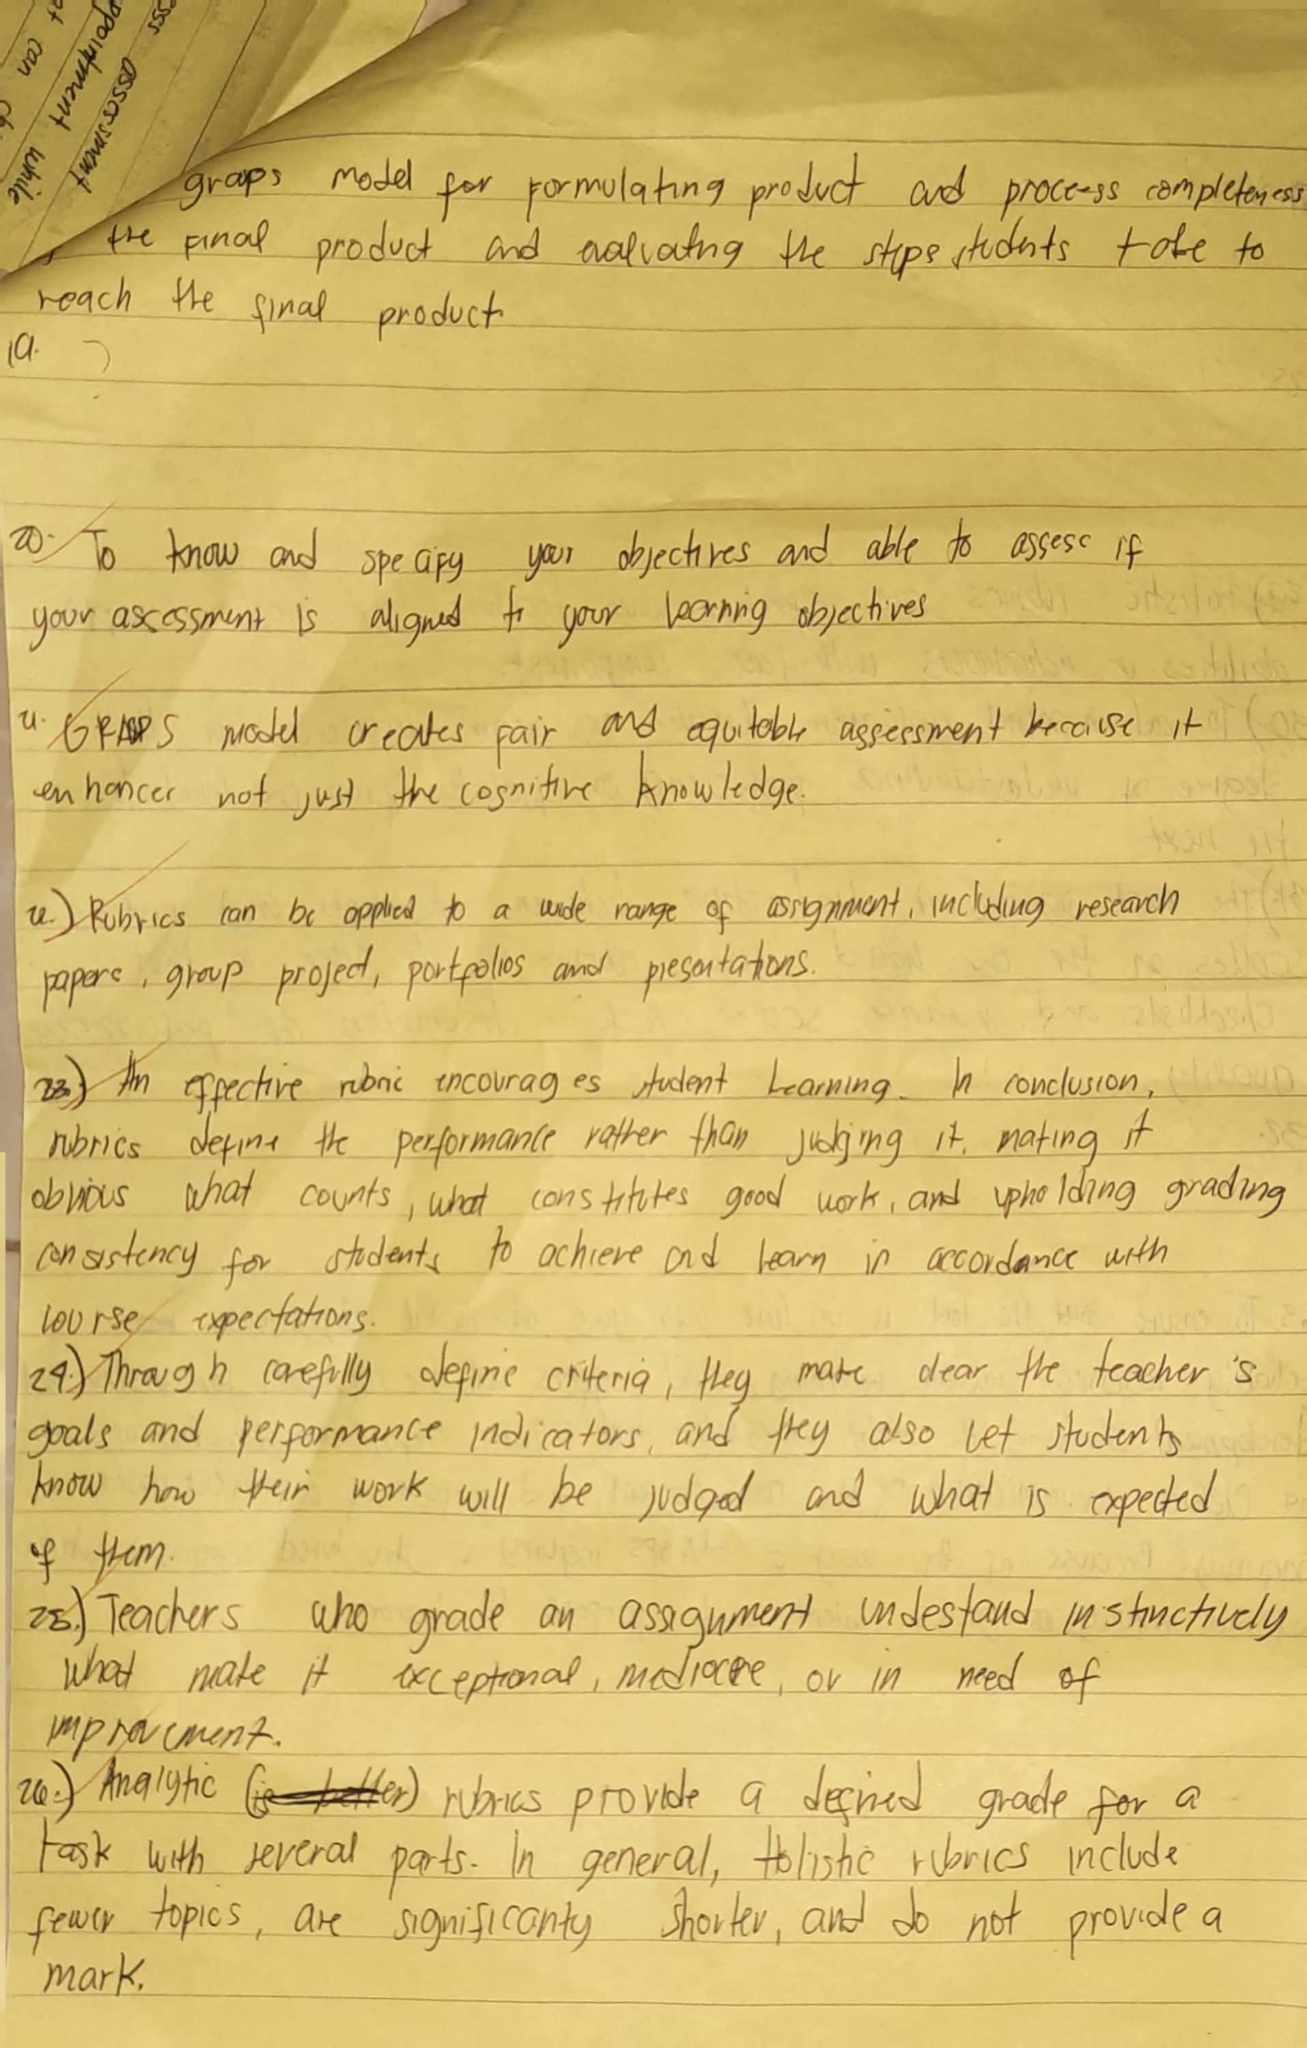 can
appointment
assessment
while
graps model for formulating product and process completeness
the final product and evaluating the steps students take to
reach the final product
19.
20. To know and specify your objectives and able to assess if
your assessment is aligned to your learning objectives
21. GRASPS model creates fair and equitable assessment because it
enhances not just the cognitive knowledge.
22.) Rubrics can be applied to a wide range of assignment, including research
papers, group project, portfolios and presentations.
23.) An effective rubric encourages student learning. In conclusion,
rubrics define the performance rather than judging it, making it
obvious what counts, what constitutes good work, and upholding grading
consistency for students to achieve and learn in accordance with
course expectations.
24.) Through carefully define criteria, they make clear the teacher's
goals and performance indicators, and they also let students
know how their work will be judged and what is expected
of them.
25.) Teachers who grade an assignment undestand instinctively
what make it exceptional, mediocre, or in need of
improvement.
26.) Analytic rubrics provide a defined grade for a
task with several parts. In general, Holistic rubrics include
fewer topics, are significanty shorter, and do not provide a
mark.